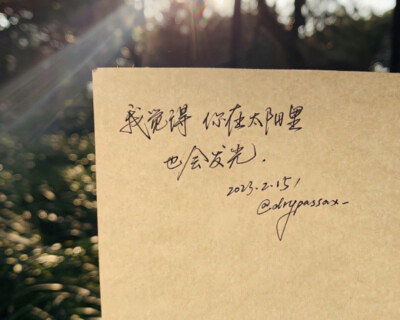 我觉得 你在太阳里
也会发光.
2023.2.15!
@drypassax_